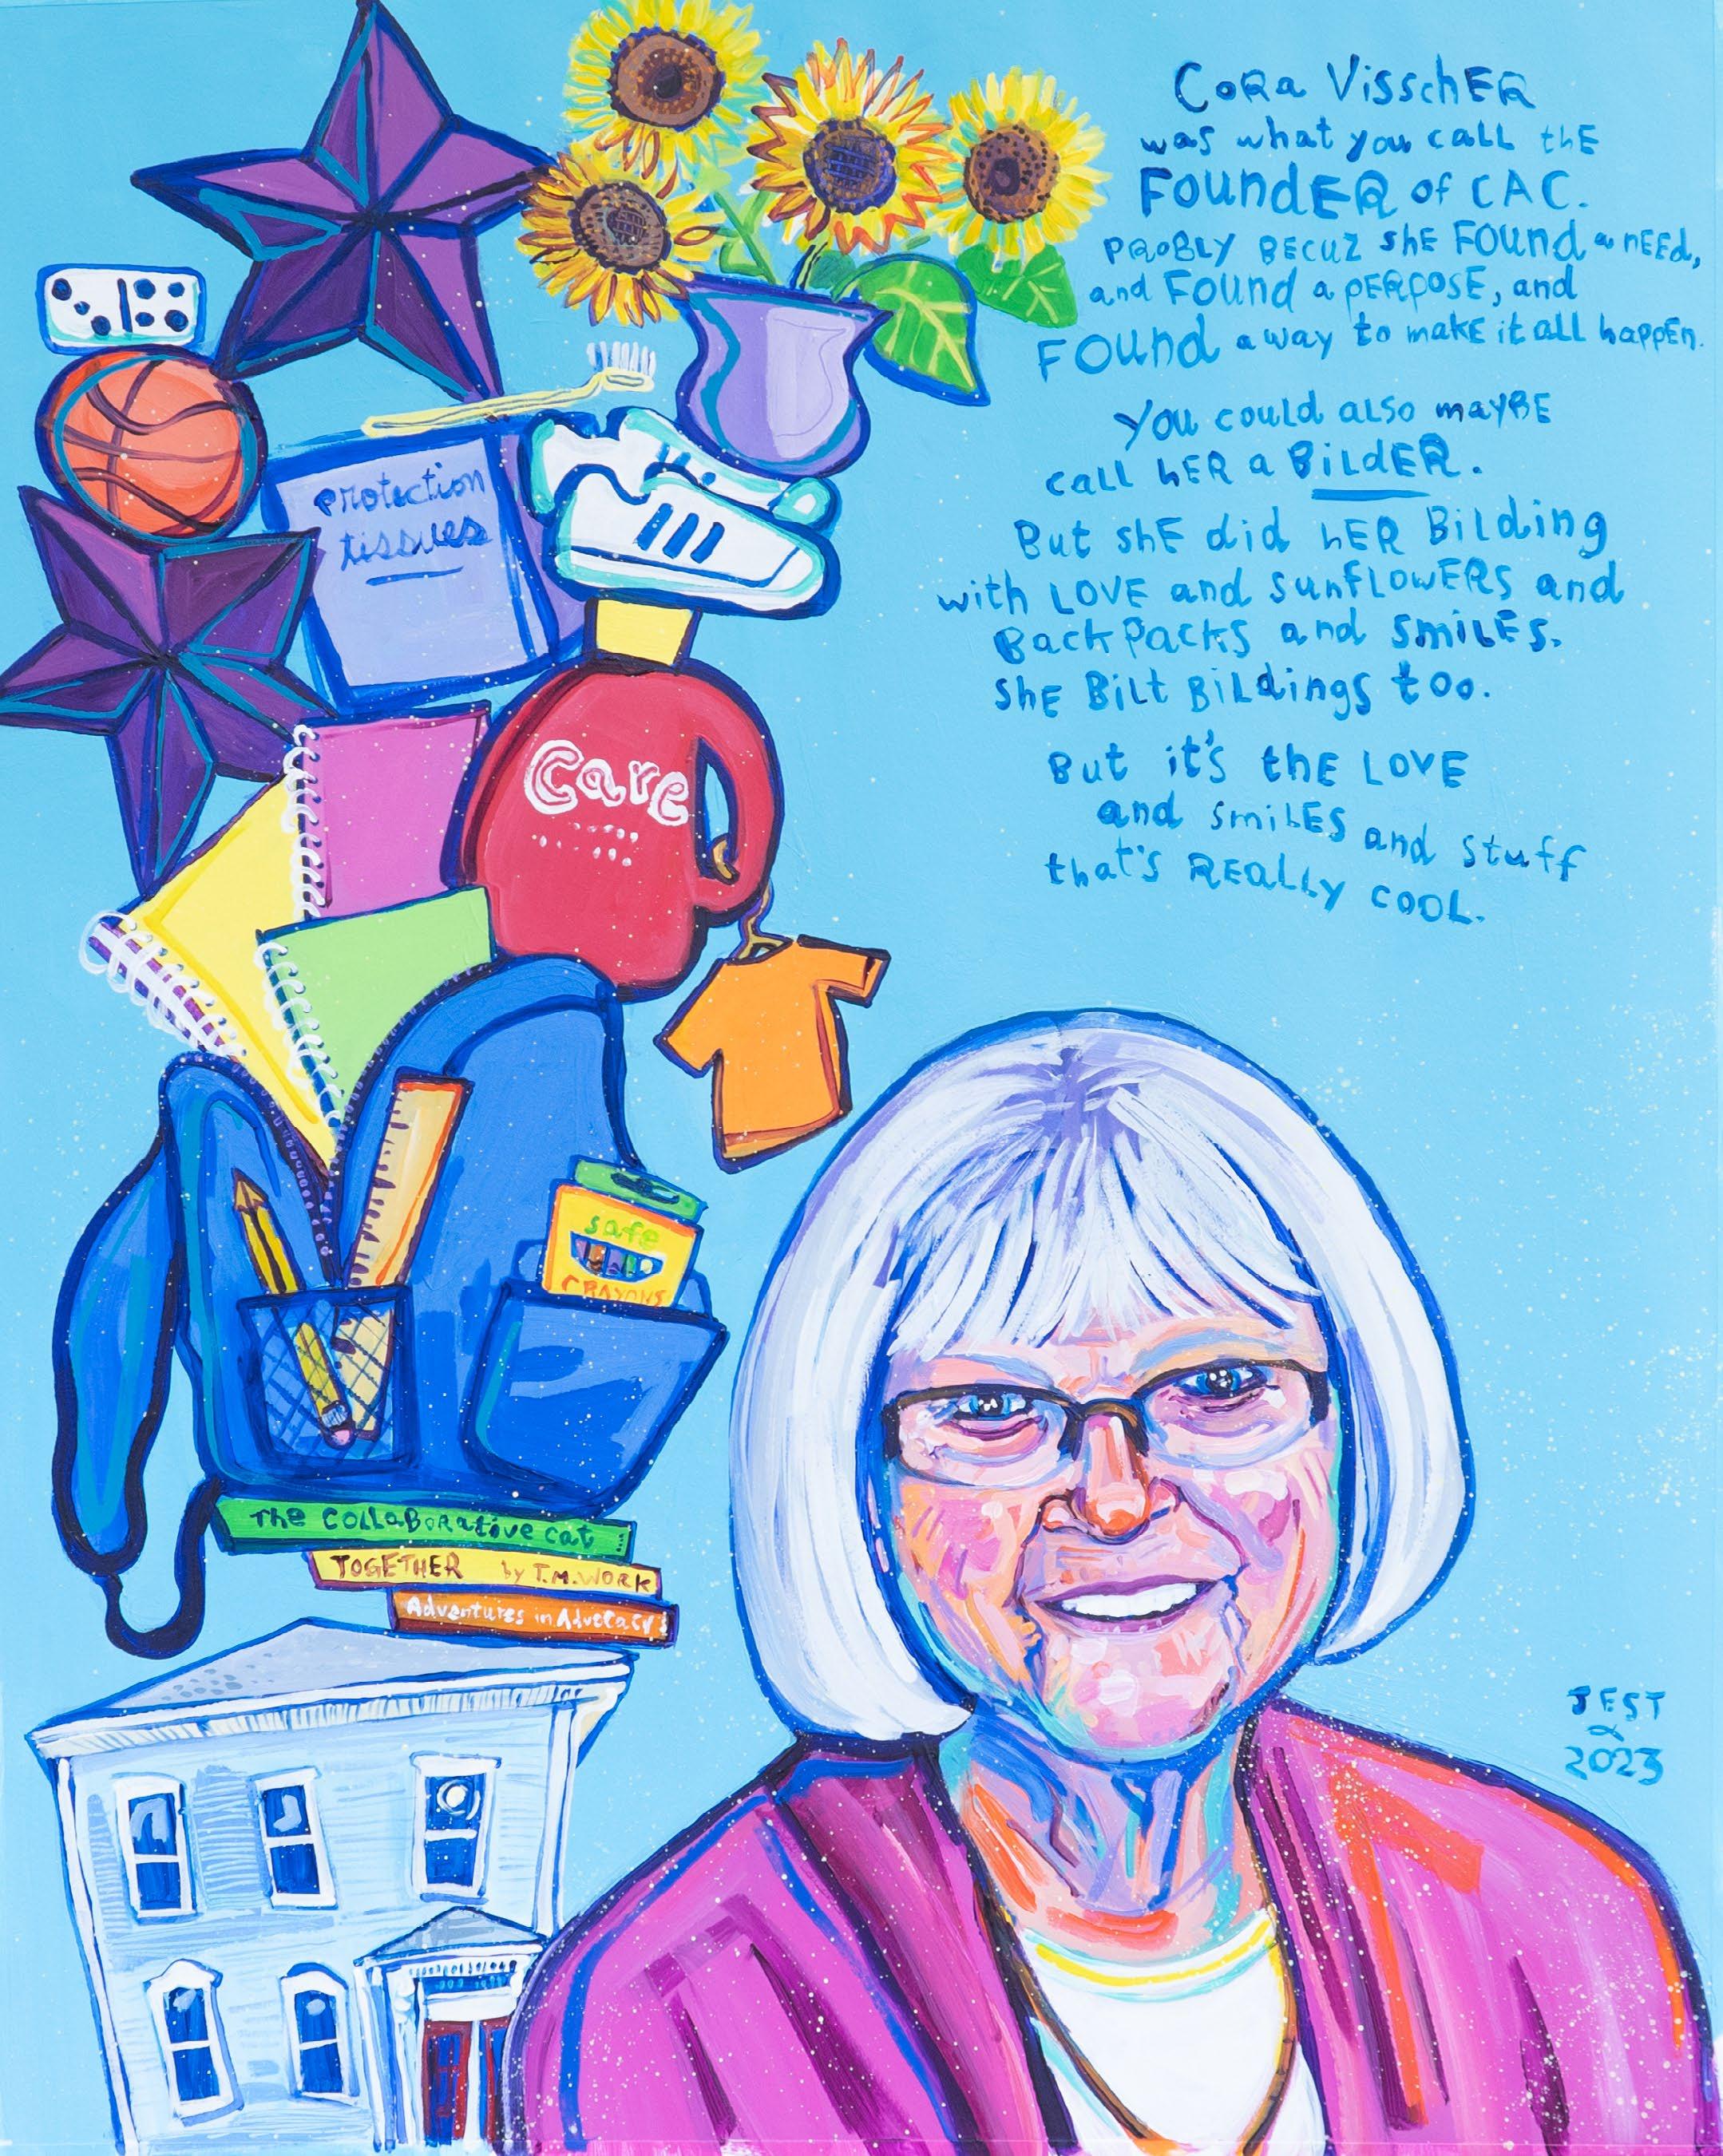 Cora Visscher
was what you call the
Founder of CAC.
probly becuz she Found a need,
and Found a perpose, and
Found a way to make it all happen.
You could also maybe
call her a Bilder.
But she did her Bilding
with Love and sunflowers and
Backpacks and smiles.
She Bilt Bildings too.
But it's the Love
and smiles and stuff
that's really cool.
protection
tissues
Care
safe
CRAYONS
The Collaborative cat
TOGETHER by T.M. WORK
Adventures in Advocacy!
JEST
2023